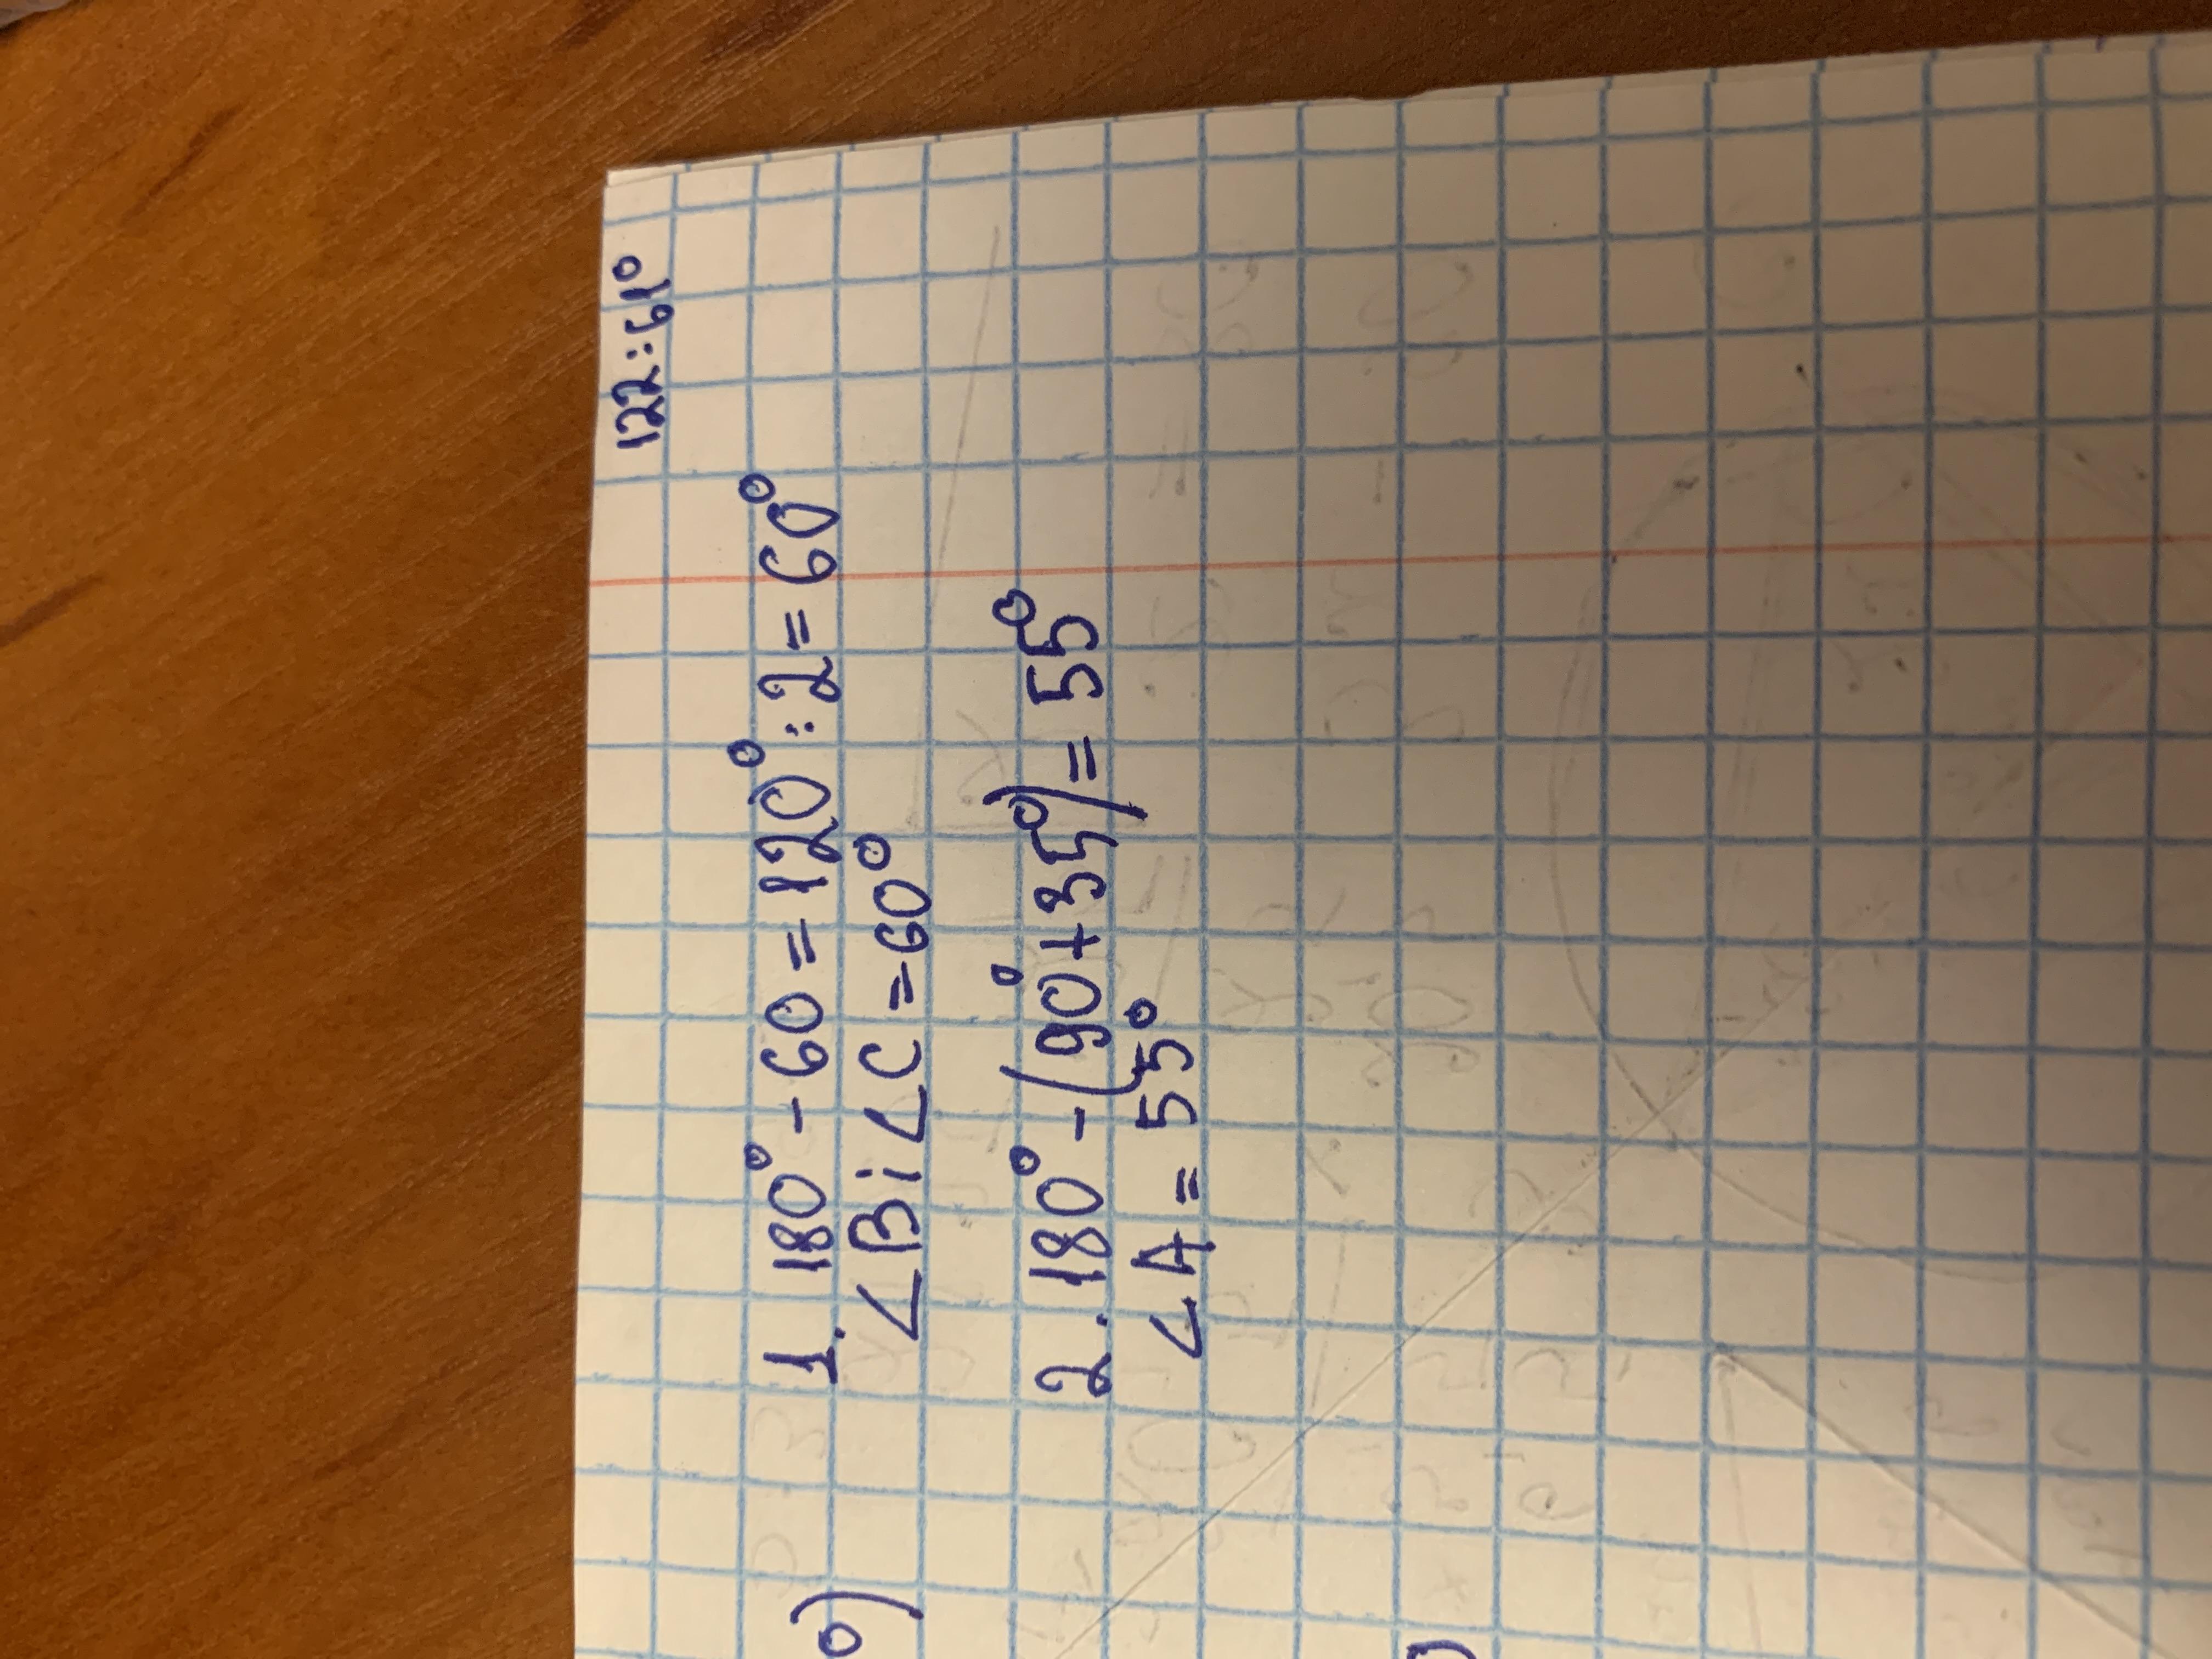 122:61°
1. 180° - 60 = 120° : 2 = 60°
∠B i ∠C = 60°
2. 180° - (90° + 35°) = 55°
∠A = 55°
°)
)